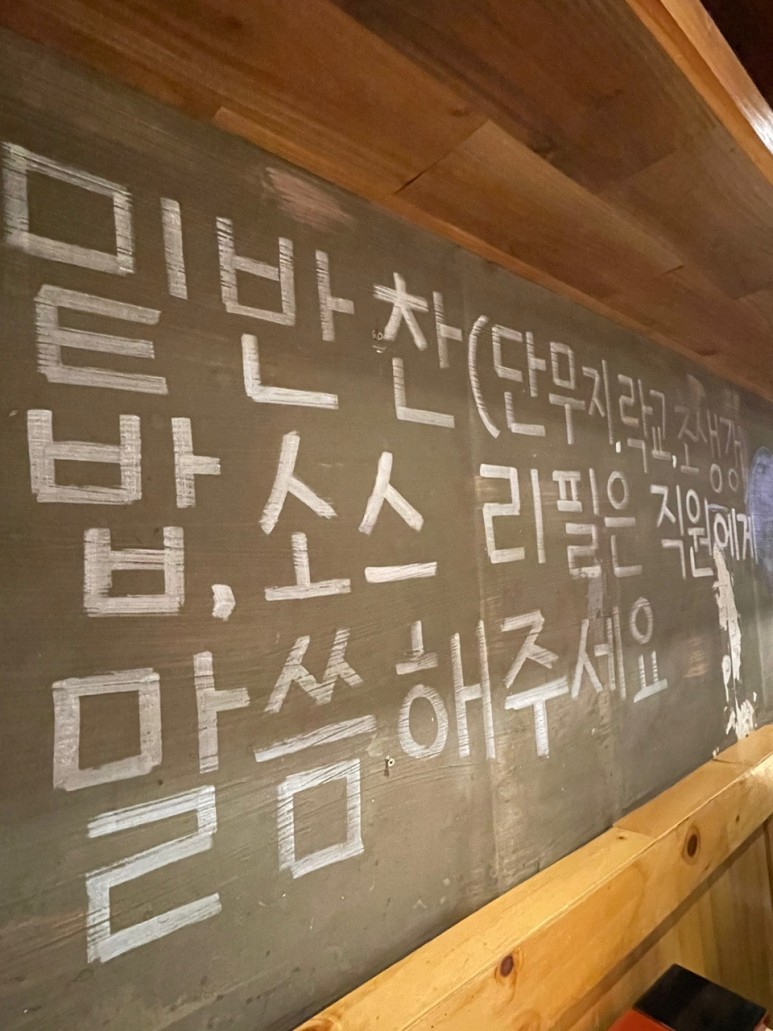 밑반찬(단무지,락교,초생강
밥,소스 리필은 직원에게
말씀해주세요